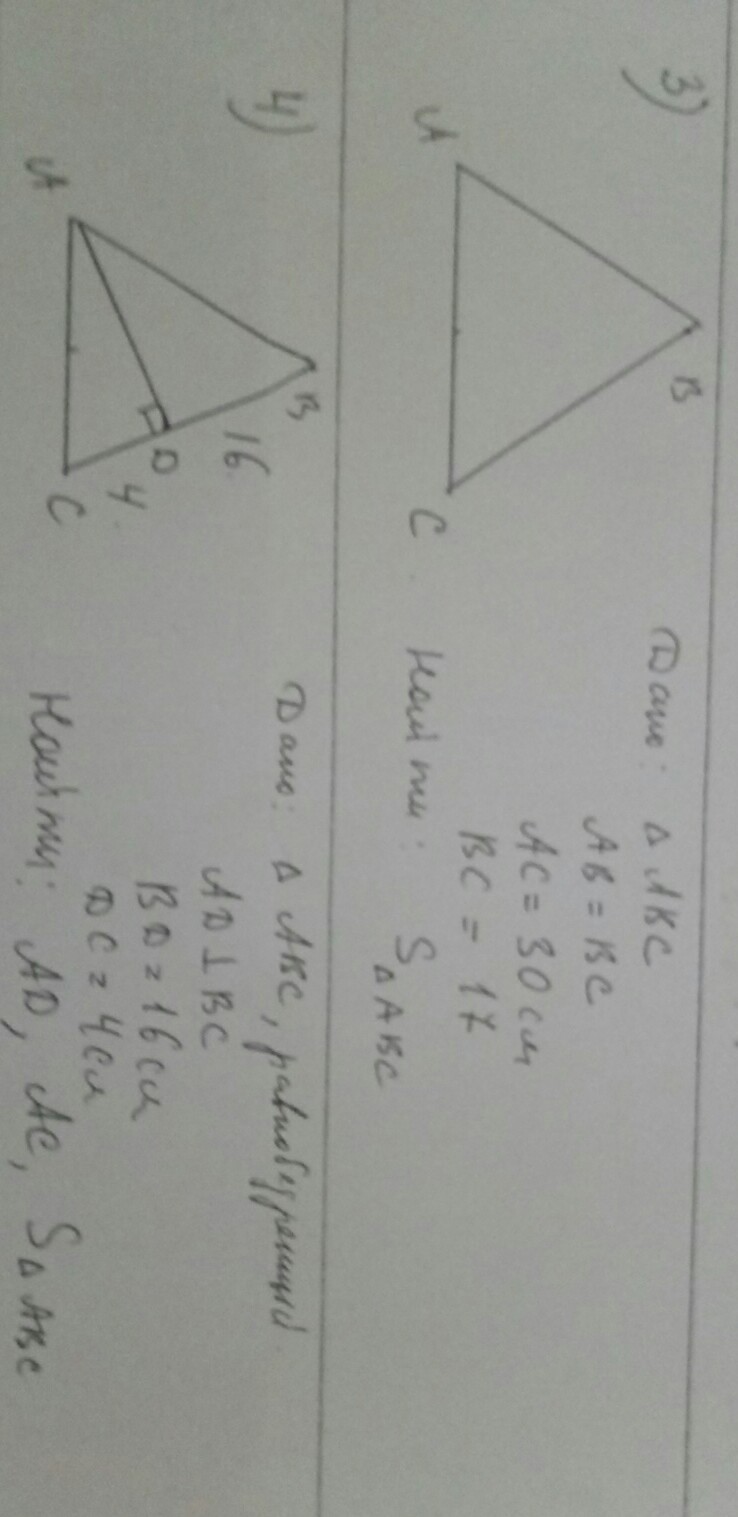 3)
B
A
C
Дано: Δ ABC
AB = BC
AC = 30 см
BC = 17
Найти: S Δ ABC
4)
B
16
D
4
A
C
Дано: Δ ABC, равнобедренный
AD ⊥ BC
BD = 16 см
DC = 4 см
Найти: AD, AC, S Δ ABC